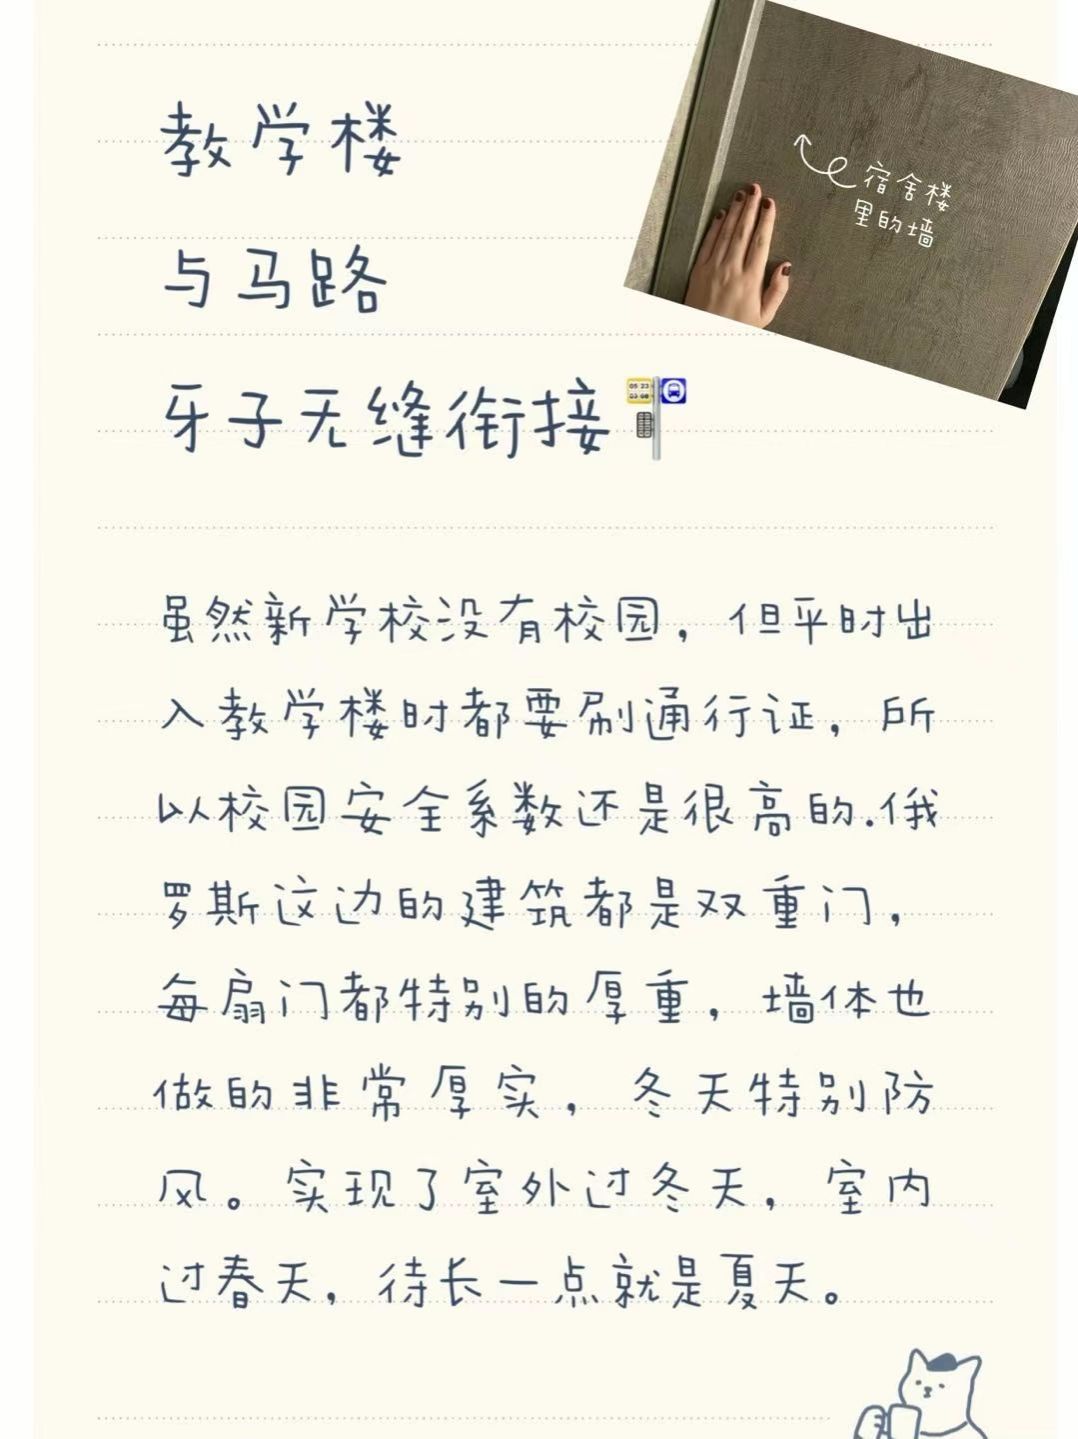 教学楼
与马路
牙子无缝衔接
宿舍楼
里的墙
虽然新学校没有校园，但平时出
入教学楼时都要刷通行证，所
以校园安全系数还是很高的.俄
罗斯这边的建筑都是双重门，
每扇门都特别的厚重，墙体也
做的非常厚实，冬天特别防
风。实现了室外过冬天，室内
过春天，待长一点就是夏天。